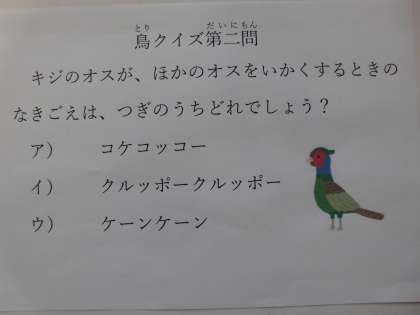 鳥クイズ第二問
キジのオスが、ほかのオスをいかくするときの
なきごえは、つぎのうちどれでしょう？
ア） コケコッコー
イ） クルッポークルッポー
ウ） ケーンケーン